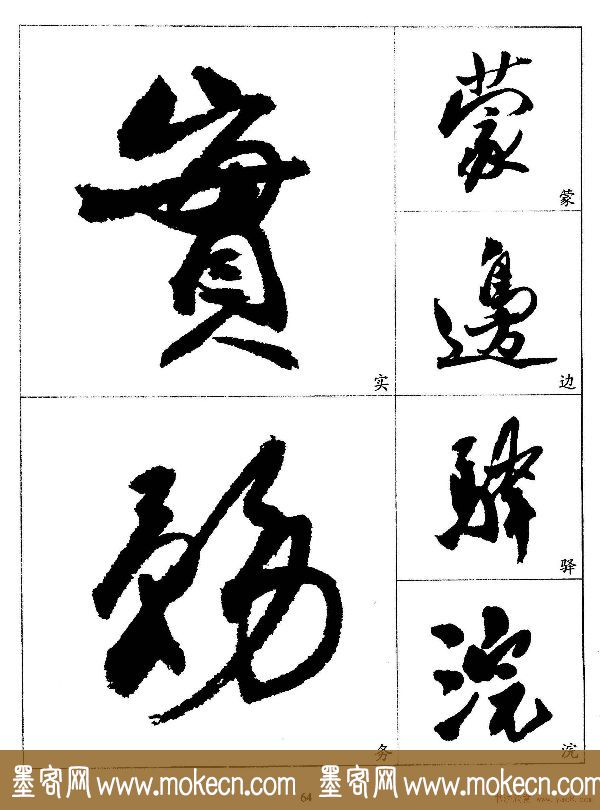 實
实
務
务
蒙
蒙
邊
边
驛
驿
浣
浣
64
墨客网 www.mokecn.com 墨客网 www.mokecn.com